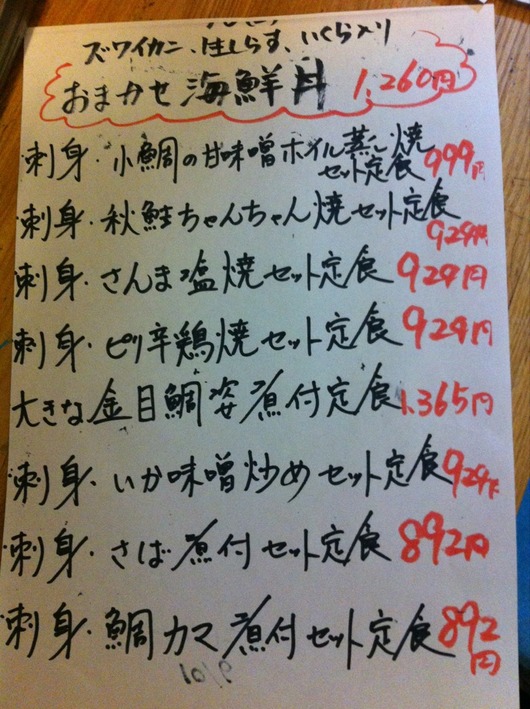 ズワイカニ、生しらす、いくら入り
おまかせ海鮮丼 1,260円
刺身・小鯛の甘味噌ホイル蒸し焼
セット定食 999円
刺身・秋鮭ちゃんちゃん焼セット定食
924円
刺身・さんま塩焼セット定食 924円
刺身・ピリ辛鶏焼セット定食 924円
大きな金目鯛姿煮付定食 1,365円
刺身・いか味噌炒めセット定食 924円
刺身・さば煮付セット定食 892円
刺身・鯛カマ煮付セット定食 892
円
10/9